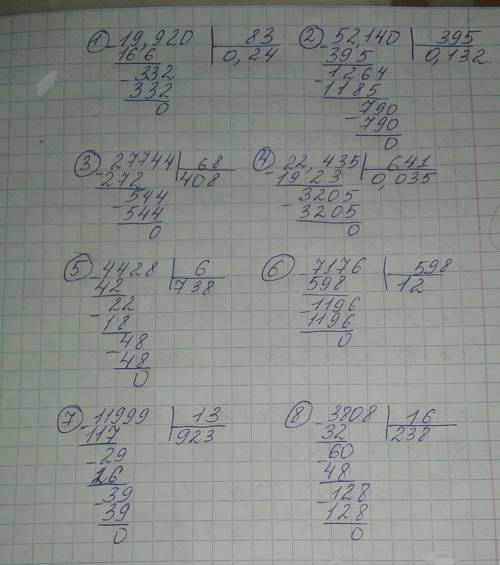 ① 19,920 | 83
- 16 6 0,24
- 332
332
0
② 52,140 | 395
- 395 0,132
- 1264
1185
- 790
790
0
③ 27744 | 68
- 272 408
- 544
544
0
④ 22,435 | 641
- 19 23 0,035
- 3205
3205
0
⑤ 4428 | 6
- 42 738
- 22
18
- 48
48
0
⑥ 7176 | 598
- 598 12
- 1196
1196
0
⑦ 11999 | 13
- 117 923
- 29
26
- 39
39
0
⑧ 3808 | 16
- 32 238
- 60
48
- 128
128
0